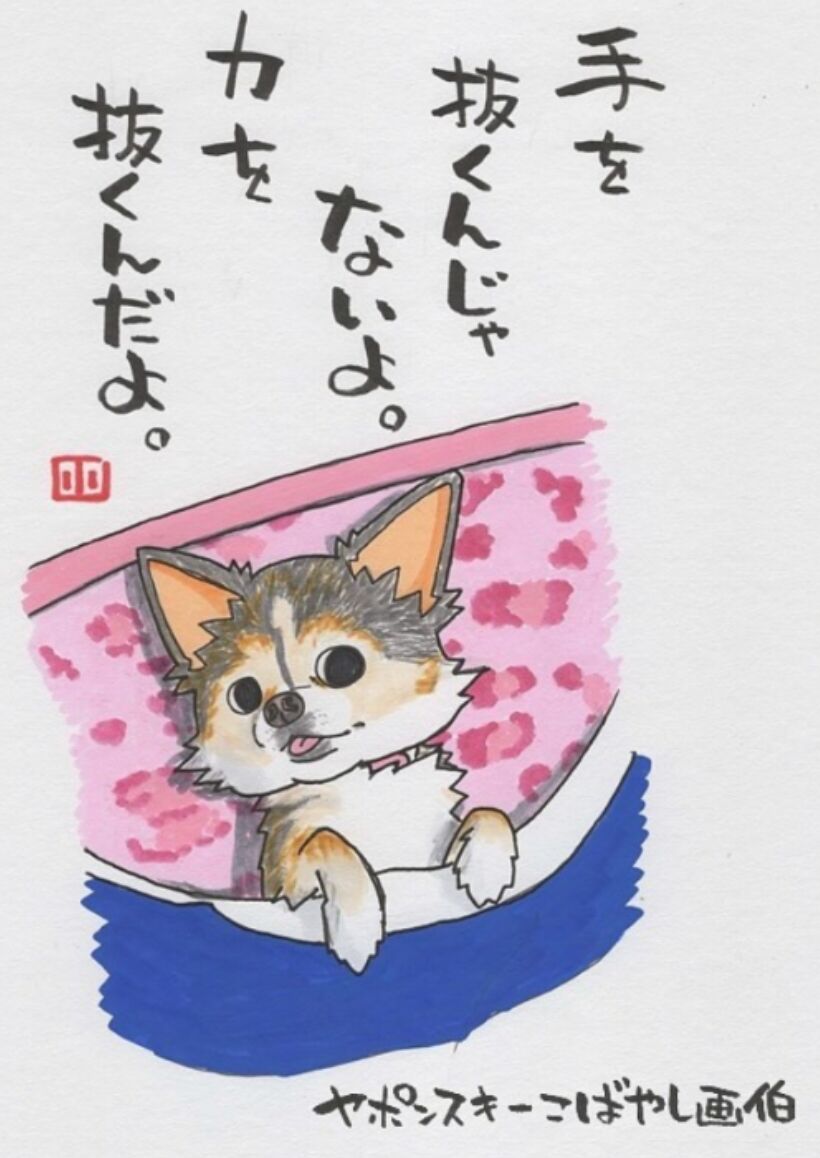 手を
抜くんじゃ
ないよ。
力を
抜くんだよ。
ヤポンスキーこばやし画伯